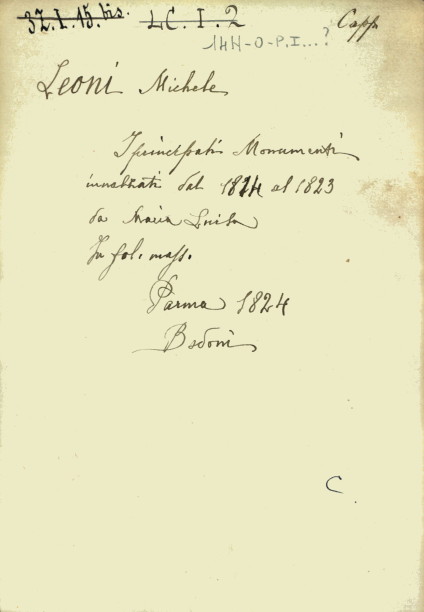 37.I.15.bis. LC.I.2 Capp
14H-O-P.I...?
Leoni Michele
I principali Monumenti
innalzati dal 1814 al 1823
da Maria Luisa
In fol. mass.
Parma 1824
Bodoni
C